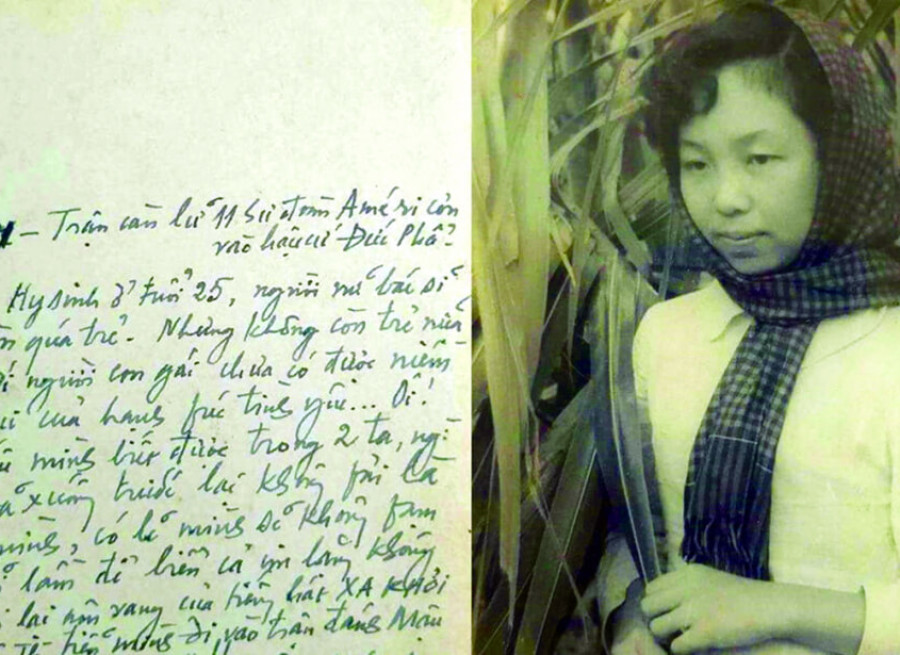 – Trận càn lữ 11 Sư đoàn Améri còn
vào hậu cứ Đức Phổ.
Hy sinh ở tuổi 25, người nữ bác sĩ
quá trẻ. Nhưng không còn trẻ nữa
người con gái chưa có được niềm
của hanh fúc tình yêu... Ôi!
mình biết được trong 2 ta,
xuống trước lại không fải là
mình, có lẽ mình sẽ không fạm
lầm để biển cả im lặng không
lại âm vang của tiếng hát XA KHƠI
tiễn mình đi vào trận đánh Mậu